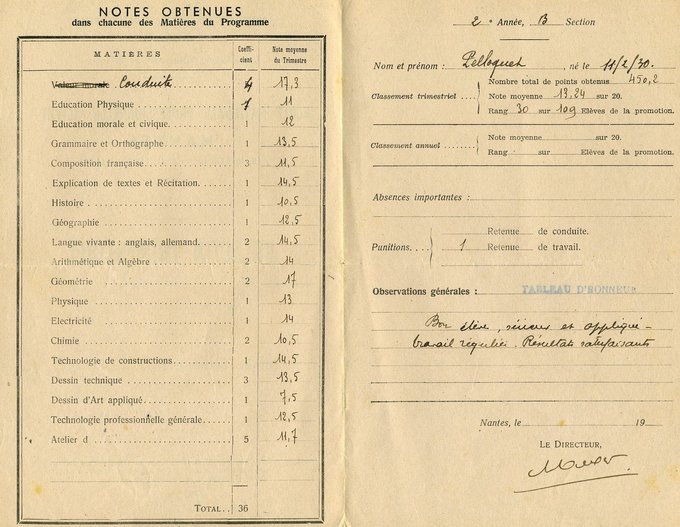 NOTES OBTENUES
dans chacune des Matières du Programme
MATIÈRES Coeffi-cient Note moyenne du Trimestre
Valeur morale Conduite 4 17,3
Education Physique 1 11
Education morale et civique 1 12
Grammaire et Orthographe 1 13,5
Composition française 3 11,5
Explication de textes et Récitation 1 14,5
Histoire 1 10,5
Géographie 1 12,5
Langue vivante : anglais, allemand 2 14,5
Arithmétique et Algèbre 2 14
Géométrie 2 17
Physique 1 13
Electricité 1 14
Chimie 2 10,5
Technologie de constructions 1 14,5
Dessin technique 3 13,5
Dessin d'Art appliqué 1 7,5
Technologie professionnelle générale 1 12,5
Atelier d 5 11,7
TOTAL 36
2e Année, B Section
Nom et prénom : Pelloquet, né le 11/2/30.
Nombre total de points obtenus 450,2
Classement trimestriel Note moyenne 13,24 sur 20.
Rang 30 sur 109 Elèves de la promotion.
Note moyenne sur 20.
Classement annuel Rang sur Elèves de la promotion.
Absences importantes :
Retenue de conduite.
Punitions 1 Retenue de travail.
Observations générales : TABLEAU D'HONNEUR
Bon élève, sérieux et appliqué -
travail régulier. Résultats satisfaisants
Nantes, le 19
LE DIRECTEUR,